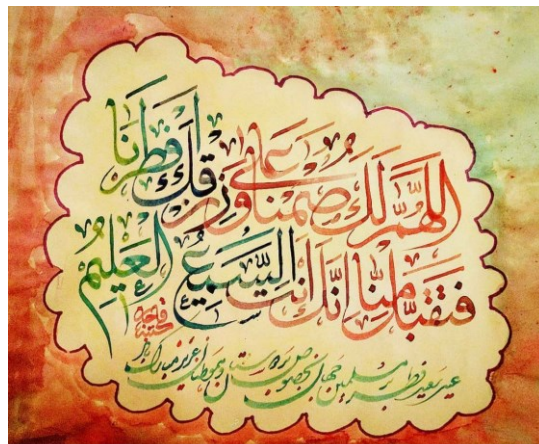 اللهم لك صمنا وعلى رزقك افطرنا
فتقبل منا انك انت السميع العليم
عید سعید فطر بر مسلمین جهان بخصوص دوستان و هموطنان عزیز مبارک باد